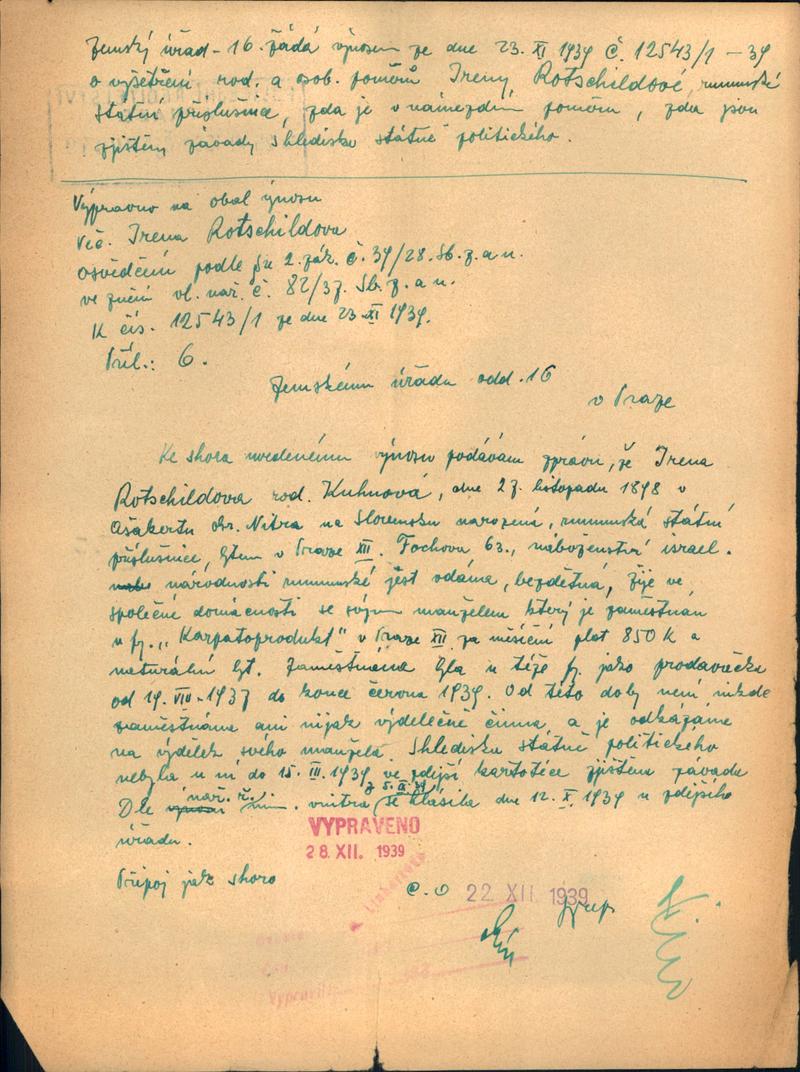 Zemský úřad - 16. žádá výnosem ze dne 23. XI 1939 č. 12543/1 - 39
o vyšetření rod. a osob. poměrů Ireny Rotschildové, rumunské
státní příslušnice, zda je v námezdním poměru, zda jsou
zjištěny závady s hlediska státně politického.
Výpravno na obal výnosu
Věc. Irena Rotschildova
osvědčení podle §u 2. zák. č. 39/28. Sb. z. a n.
ve znění vl. nař. č. 82/37. Sb. z. a n.
K čís. 12543/1 ze dne 23. XI 1939.
Příl.: 6.
Zemskému úřadu odd. 16
v Praze
Ke shora uvedenému výnosu podávám zprávu, že Irena
Rotschildova rod. Kuhnová, dne 27. listopadu 1898 v
Ašakertu okr. Nitra na Slovensku narozená, rumunská státní
příslušnice, bytem v Praze XII. Fochova 63., náboženství israel.
národnosti rumunské jest vdána, bezdětná, žije ve
společné domácnosti se svým manželem který je zaměstnán
u fy. „Karpatoprodukt" v Praze XII za měsíční plat 850 K a
naturální byt. Zaměstnána byla u téže fy. jako prodavačka
od 19. VIII. 1937 do konce června 1939. Od této doby není nikde
zaměstnána ani nijak výdělečně činna a je odkázána
na výdělek svého manžela. S hlediska státně politického
nebyla u ní do 15. III. 1939 ve zdejší kartotéce zjištěna závada
Dle nař. ř. min. vnitra z 5. IX. 39 se hlásila dne 12. X. 1939 u zdejšího
úřadu.
VYPRAVENO
28. XII. 1939
Připoj jak shora
22 XII 1939
Vypravil